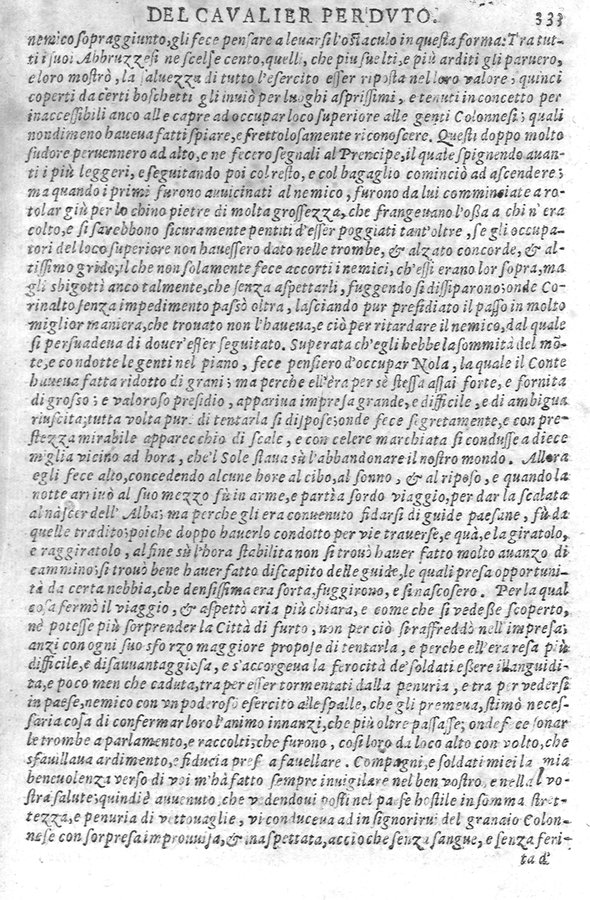 DEL CAVALIER PERDVTO. 333
nemico sopraggiunto, gli fece pensare a levarsi l'ostaculo in questa forma: Tra tut-
ti i suoi Abbruzzesi ne scelse cento, quelli, che piu suelti, e più arditi gli paruero,
e loro mostrò, la saluezza di tutto l'esercito esser riposta nel loro valore; quinci
coperti da certi boschetti gli inuiò per luoghi asprissimi, e tenuti in concetto per
inaccessibili anco alle capre ad occupar loco superiore alle genti Colonnesi; quali
nondimeno haueua fatti spiare, e frettolosamente riconoscere. Questi doppo molto
sudore peruennero ad alto, e ne fecero segnali al Prencipe, il quale spignendo auan-
ti i più leggeri, e seguitando poi col resto, e col bagaglio cominciò ad ascendere;
ma quando i primi furono auuicinati al nemico, furono da lui comminciate a ro-
tolar giù per lo chino pietre di molta grossezza, che frangeuano l'ossa a chi n'era
colto, e si sarebbono sicuramente pentiti d'esser poggiati tant'oltre, se gli occupa-
tori del loco superiore non hauessero dato nelle trombe, & alzato concorde, & al-
tissimo grido; il che non solamente fece accorti i nemici, ch'essi erano lor sopra, ma
gli sbigottì anco talmente, che senza aspettarli, fuggendo si dissiparono; onde Co-
rinalto senza impedimento passò oltra, lasciando pur presidiato il passo in molto
miglior maniera, che trouato non l'haueua, e ciò per ritardare il nemico, dal quale
si persuadeua di douer'esser seguitato. Superata ch'egli hebbe la sommità del mõ-
te, e condotte le genti nel piano, fece pensiero d'occupar Nola, la quale il Conte
haueua fatta ridotto di grani; ma perche ell'èra per sè stessa assai forte, e fornita
di grosso; e valoroso presidio, appariua impresa grande, e difficile, e di ambigua
riuscita; tutta volta pur di tentarla si dispose; onde fece segretamente, e con pre-
stezza mirabile apparecchio di scale, e con celere marchiata si condusse a diece
miglia vicino ad hora, che'l Sole staua sù l'abbandonare il nostro mondo. Allora
egli fece alto, concedendo alcune hore al cibo, al sonno, & al riposo, e quando la
notte arriuò al suo mezzo fù in arme, e partì a sordo viaggio, per dar la scalata
al nascer dell'Alba; ma perche gli era conuenuto fidarsi di guide paesane, fù da
quelle tradito; poiche doppo hauerlo condotto per vie trauerse, e quà, e la giratolo,
e raggiratolo, al fine sù l'hora stabilita non si trouò hauer fatto molto auanzo di
cammino; si trouò bene hauer fatto discapito delle guide, le quali presa opportuni-
tà da certa nebbia, che densissima era sorta, fuggirono, e si nascosero. Per la qual
cosa fermò il viaggio, & aspettò aria più chiara, e come che si vedesse scoperto,
nè potesse più sorprender la Città di furto, non per ciò si raffreddò nell'impresa;
anzi con ogni suo sforzo maggiore propose di tentarla, e perche ell'era resa più
difficile, e disauuantaggiosa, e s'accorgeua la ferocità de'soldati essere illanguidi-
ta, e poco men che caduta, tra per esser tormentati dalla penuria, e tra per vedersi
in paese, nemico con vn poderoso esercito alle spalle, che gli premeua, stimò neces-
saria cosa di confermar loro l'animo innanzi, che più oltre passasse; onde fece sonar
le trombe a parlamento, e raccolti; che furono, così loro da loco alto con volto, che
sfauillaua ardimento, e fiducia prese a fauellare. Compagni, e soldati miei la mia
beneuolenza verso di voi m'hà fatto sempre inuigilare nel ben vostro, e nella vo-
stra salute; quindi è auuenuto che vedendoui posti nel paese hostile in somma stret-
tezza, e penuria di vettouaglie, vi conduceua ad insignorirui del granaio Colon-
nese con sorpresa improuuisa, & inaspettata, acciochè senza sangue, e senza feri-
ta d'